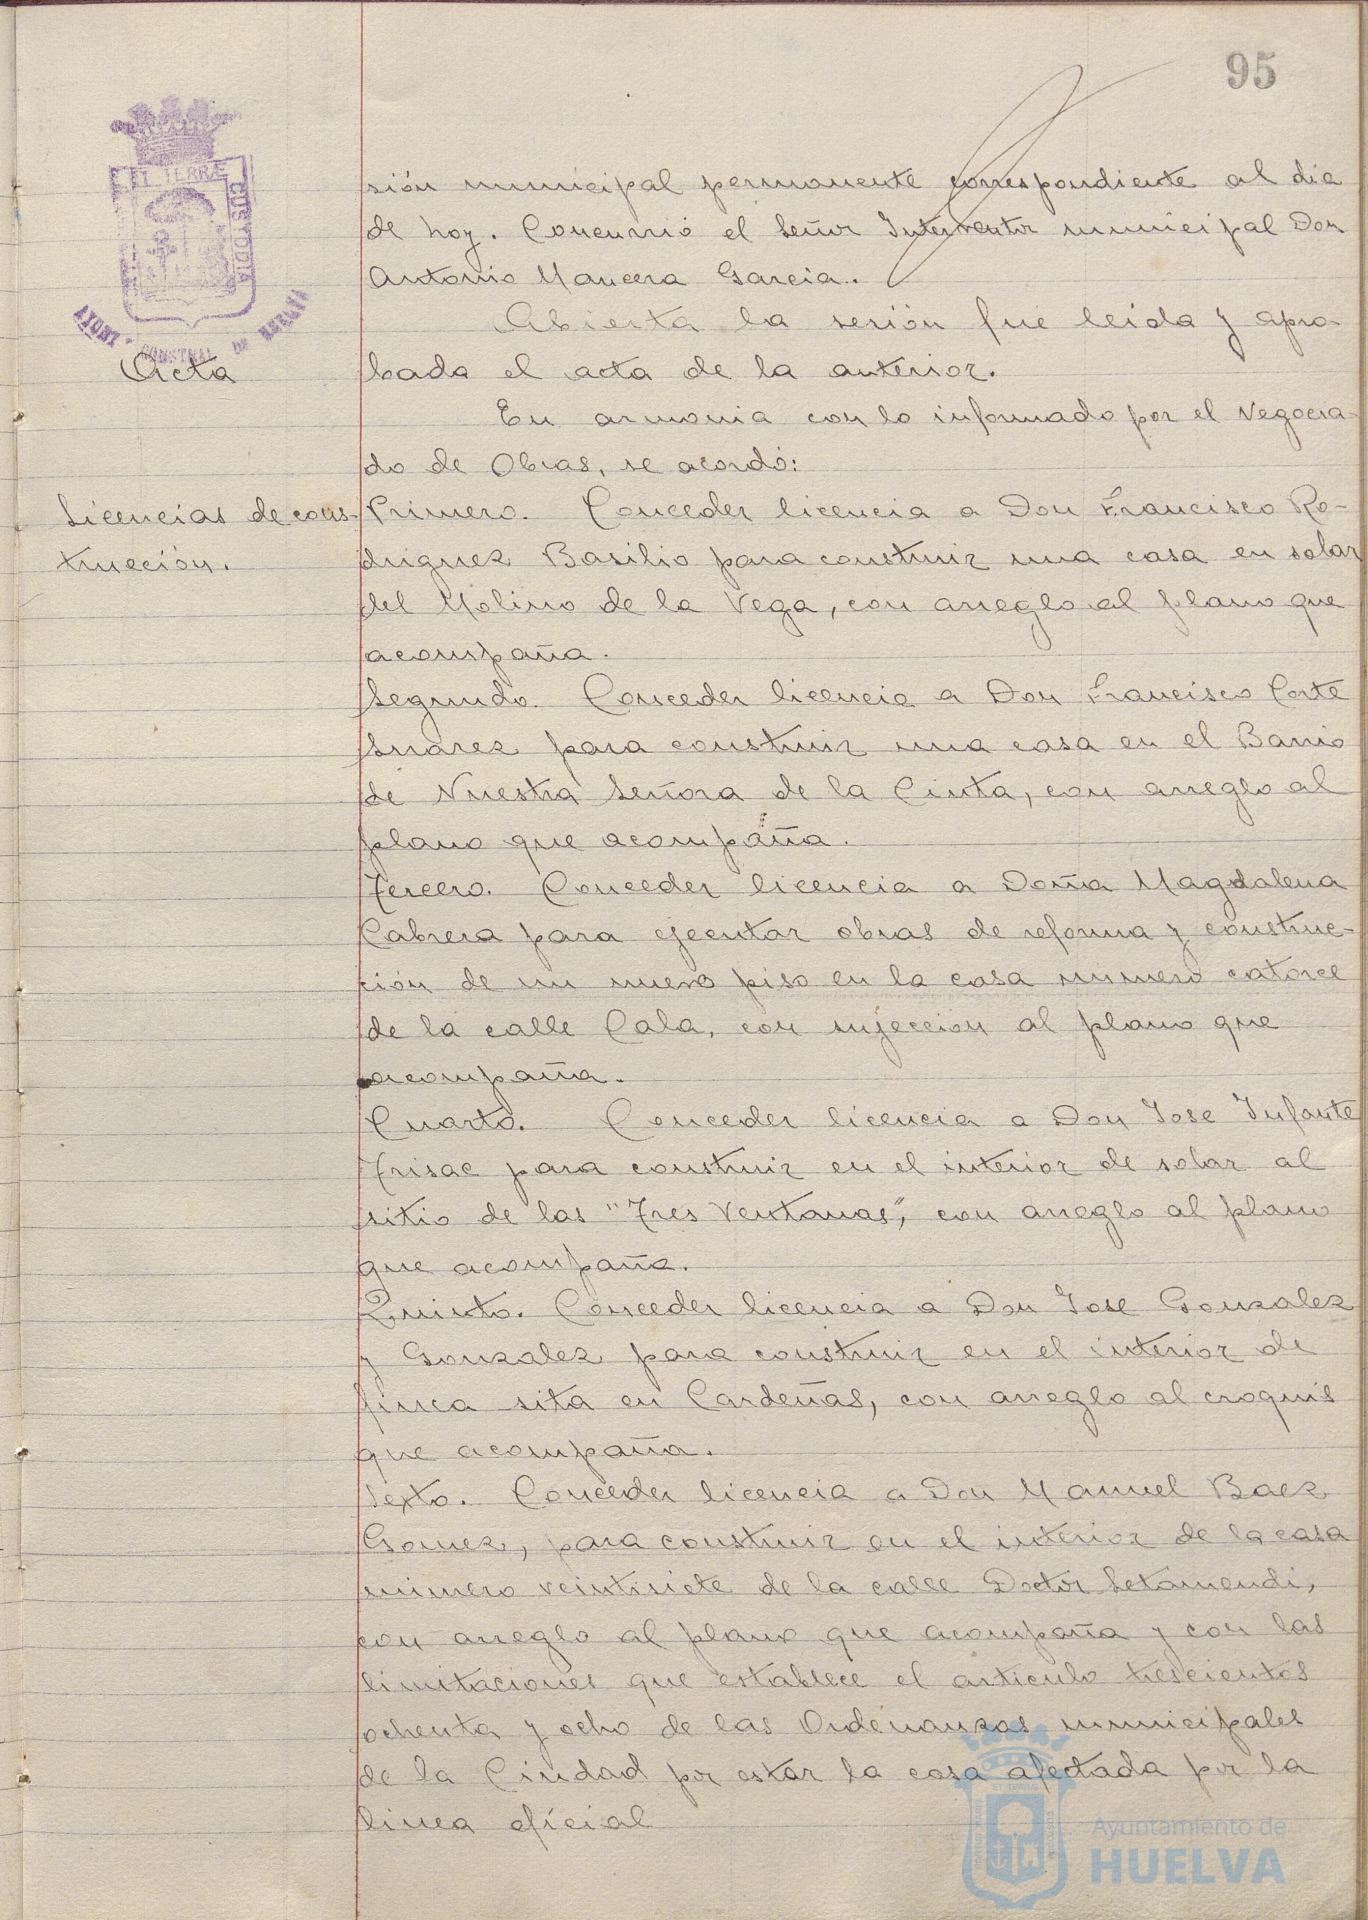 95
ET TERRÆ
CUSTODIA
AYUNT. CONSTNAL DE HUELVA
sión municipal permanente correspondiente al dia
de hoy. Concurrió el Señor Interventor municipal Don
Antonio Mancera Garcia.
Abierta la sesión fue leida y apro-
Acta
bada el acta de la anterior.
En armonia con lo informado por el Negocia-
do de Obras, se acordó:
Licencias de cons-
trucción.
Primero. Conceder licencia a Don Francisco Ro-
driguez Basilio para construir una casa en solar
del Molino de la Vega, con arreglo al plano que
acompaña.
Segundo. Conceder licencia a Don Francisco Corte
Suarez para construir una casa en el Barrio
de Nuestra Señora de la Cinta, con arreglo al
plano que acompaña.
Tercero. Conceder licencia a Doña Magdalena
Cabrera para ejecutar obras de reforma y construc-
ción de un nuevo piso en la casa numero catorce
de la calle Cala, con sujeccion al plano que
acompaña.
Cuarto. Conceder licencia a Don Jose Infante
Trisac para construir en el interior de solar al
sitio de las "Tres Ventanas", con arreglo al plano
que acompaña.
Quinto. Conceder licencia a Don Jose Gonzalez
y Gonzalez para construir en el interior de
finca sita en Cardeñas, con arreglo al croquis
que acompaña.
Sexto. Conceder licencia a Don Manuel Baez
Gomez, para construir en el interior de la casa
numero veintisiete de la calle Doctor Letamendi,
con arreglo al plano que acompaña y con las
limitaciones que establece el articulo trescientos
ochenta y ocho de las Ordenanzas municipales
de la Ciudad por estar la casa afectada por la
linea oficial
Ayuntamiento de
HUELVA